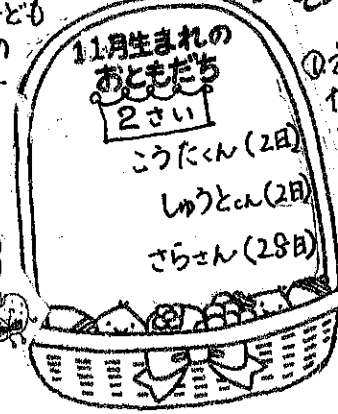 11月生まれの
おともだち
2さい
こうたくん(2日)
しゅうとくん(2日)
さらさん(28日)
ども
の
①